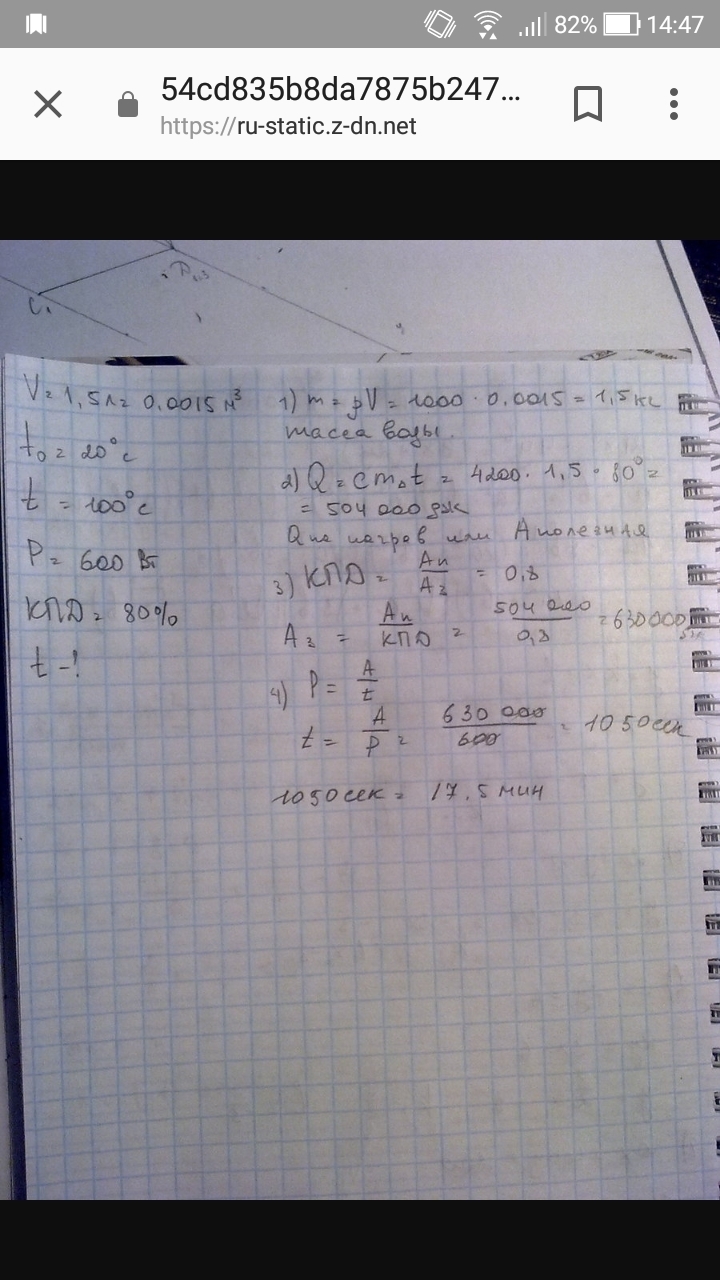 82% 14:47
54cd835b8da7875b247...
https://ru-static.z-dn.net
C₁
V = 1,5л = 0,0015 м³
t₀ = 20°c
t = 100°c
P = 600 Вт
КПД = 80%
t - !
1) m = ρV = 1000 · 0,0015 = 1,5 кг
масса воды.
2) Q = cm△t = 4200 · 1,5 · 80° =
= 504 000 дж
Q на нагрев или А полезная
3) КПД = Ап / Аз = 0,8
Аз = Ап / КПД = 504 000 / 0,8 = 630000
4) P = A / t
t = A / P = 630 000 / 600 = 1050 сек
1050 сек = 17.5 мин